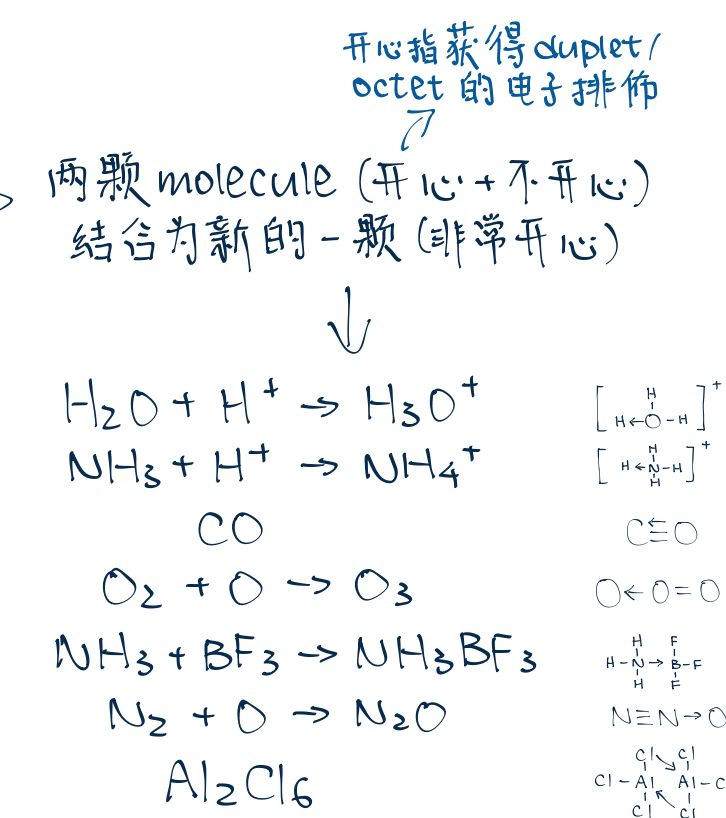 开心指获得duplet/
octet的电子排佈
两颗molecule (开心+不开心)
结合为新的一颗(非常开心)
↓
H₂O + H⁺ → H₃O⁺
[H←O-H]⁺
H
NH₃ + H⁺ → NH₄⁺
[H←N-H]⁺
H
H
CO
C⇚O
O₂ + O → O₃
O←O=O
NH₃ + BF₃ → NH₃BF₃
H F
H-N→B-F
H F
N₂ + O → N₂O
N≡N→O
Al₂Cl₆
Cl Cl
Cl-Al Al-C
Cl Cl